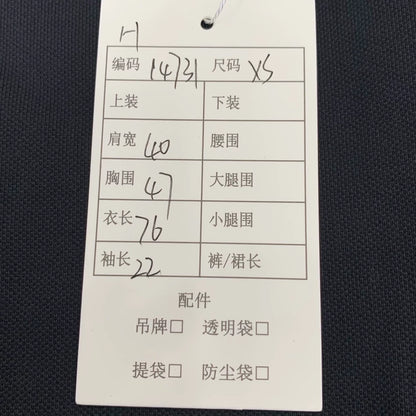 编码 14731 尺码 XS
上装 下装
肩宽 40 腰围
胸围 47 大腿围
衣长 76 小腿围
袖长 22 裤/裙长
配件
吊牌□ 透明袋□
提袋□ 防尘袋□